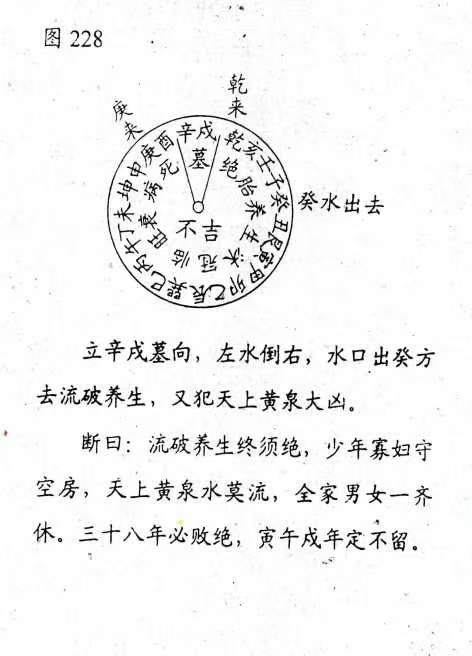 图 228
乾来
庚来
辛戌乾亥壬子癸丑艮寅甲卯乙辰巽巳丙午丁未坤申庚酉
墓绝胎养生沐冠临旺衰病死
不吉
癸水出去
立辛戌墓向，左水倒右，水口出癸方
去流破养生，又犯天上黄泉大凶。
断曰：流破养生终须绝，少年寡妇守
空房，天上黄泉水莫流，全家男女一齐
休。三十八年必败绝，寅午戌年定不留。